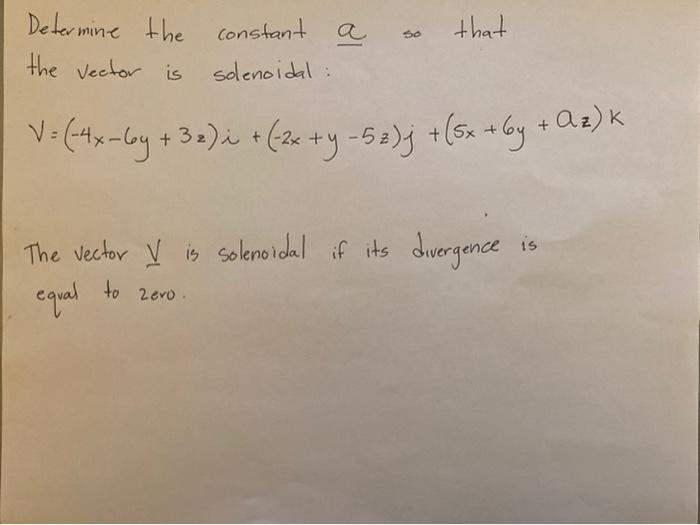 Determine the constant a so that
the vector is solenoidal :
V = (-4x - 6y + 3z) i + (-2x + y - 5z) j + (5x + 6y + az) k
The vector V is solenoidal if its divergence is
equal to zero.